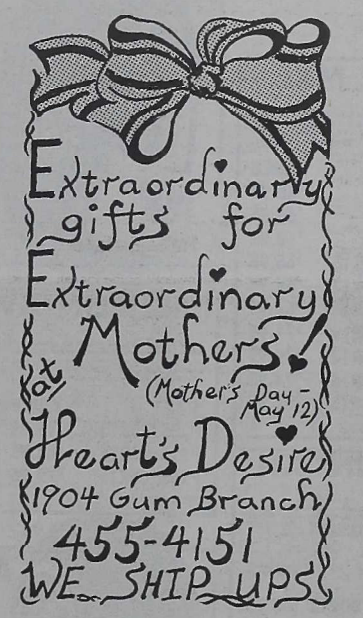 Extraordinary
gifts for
Extraordinary
Mothers!
(Mother's Day -
May 12)
at
Heart's Desire
1904 Gum Branch
455-4151
WE SHIP UPS